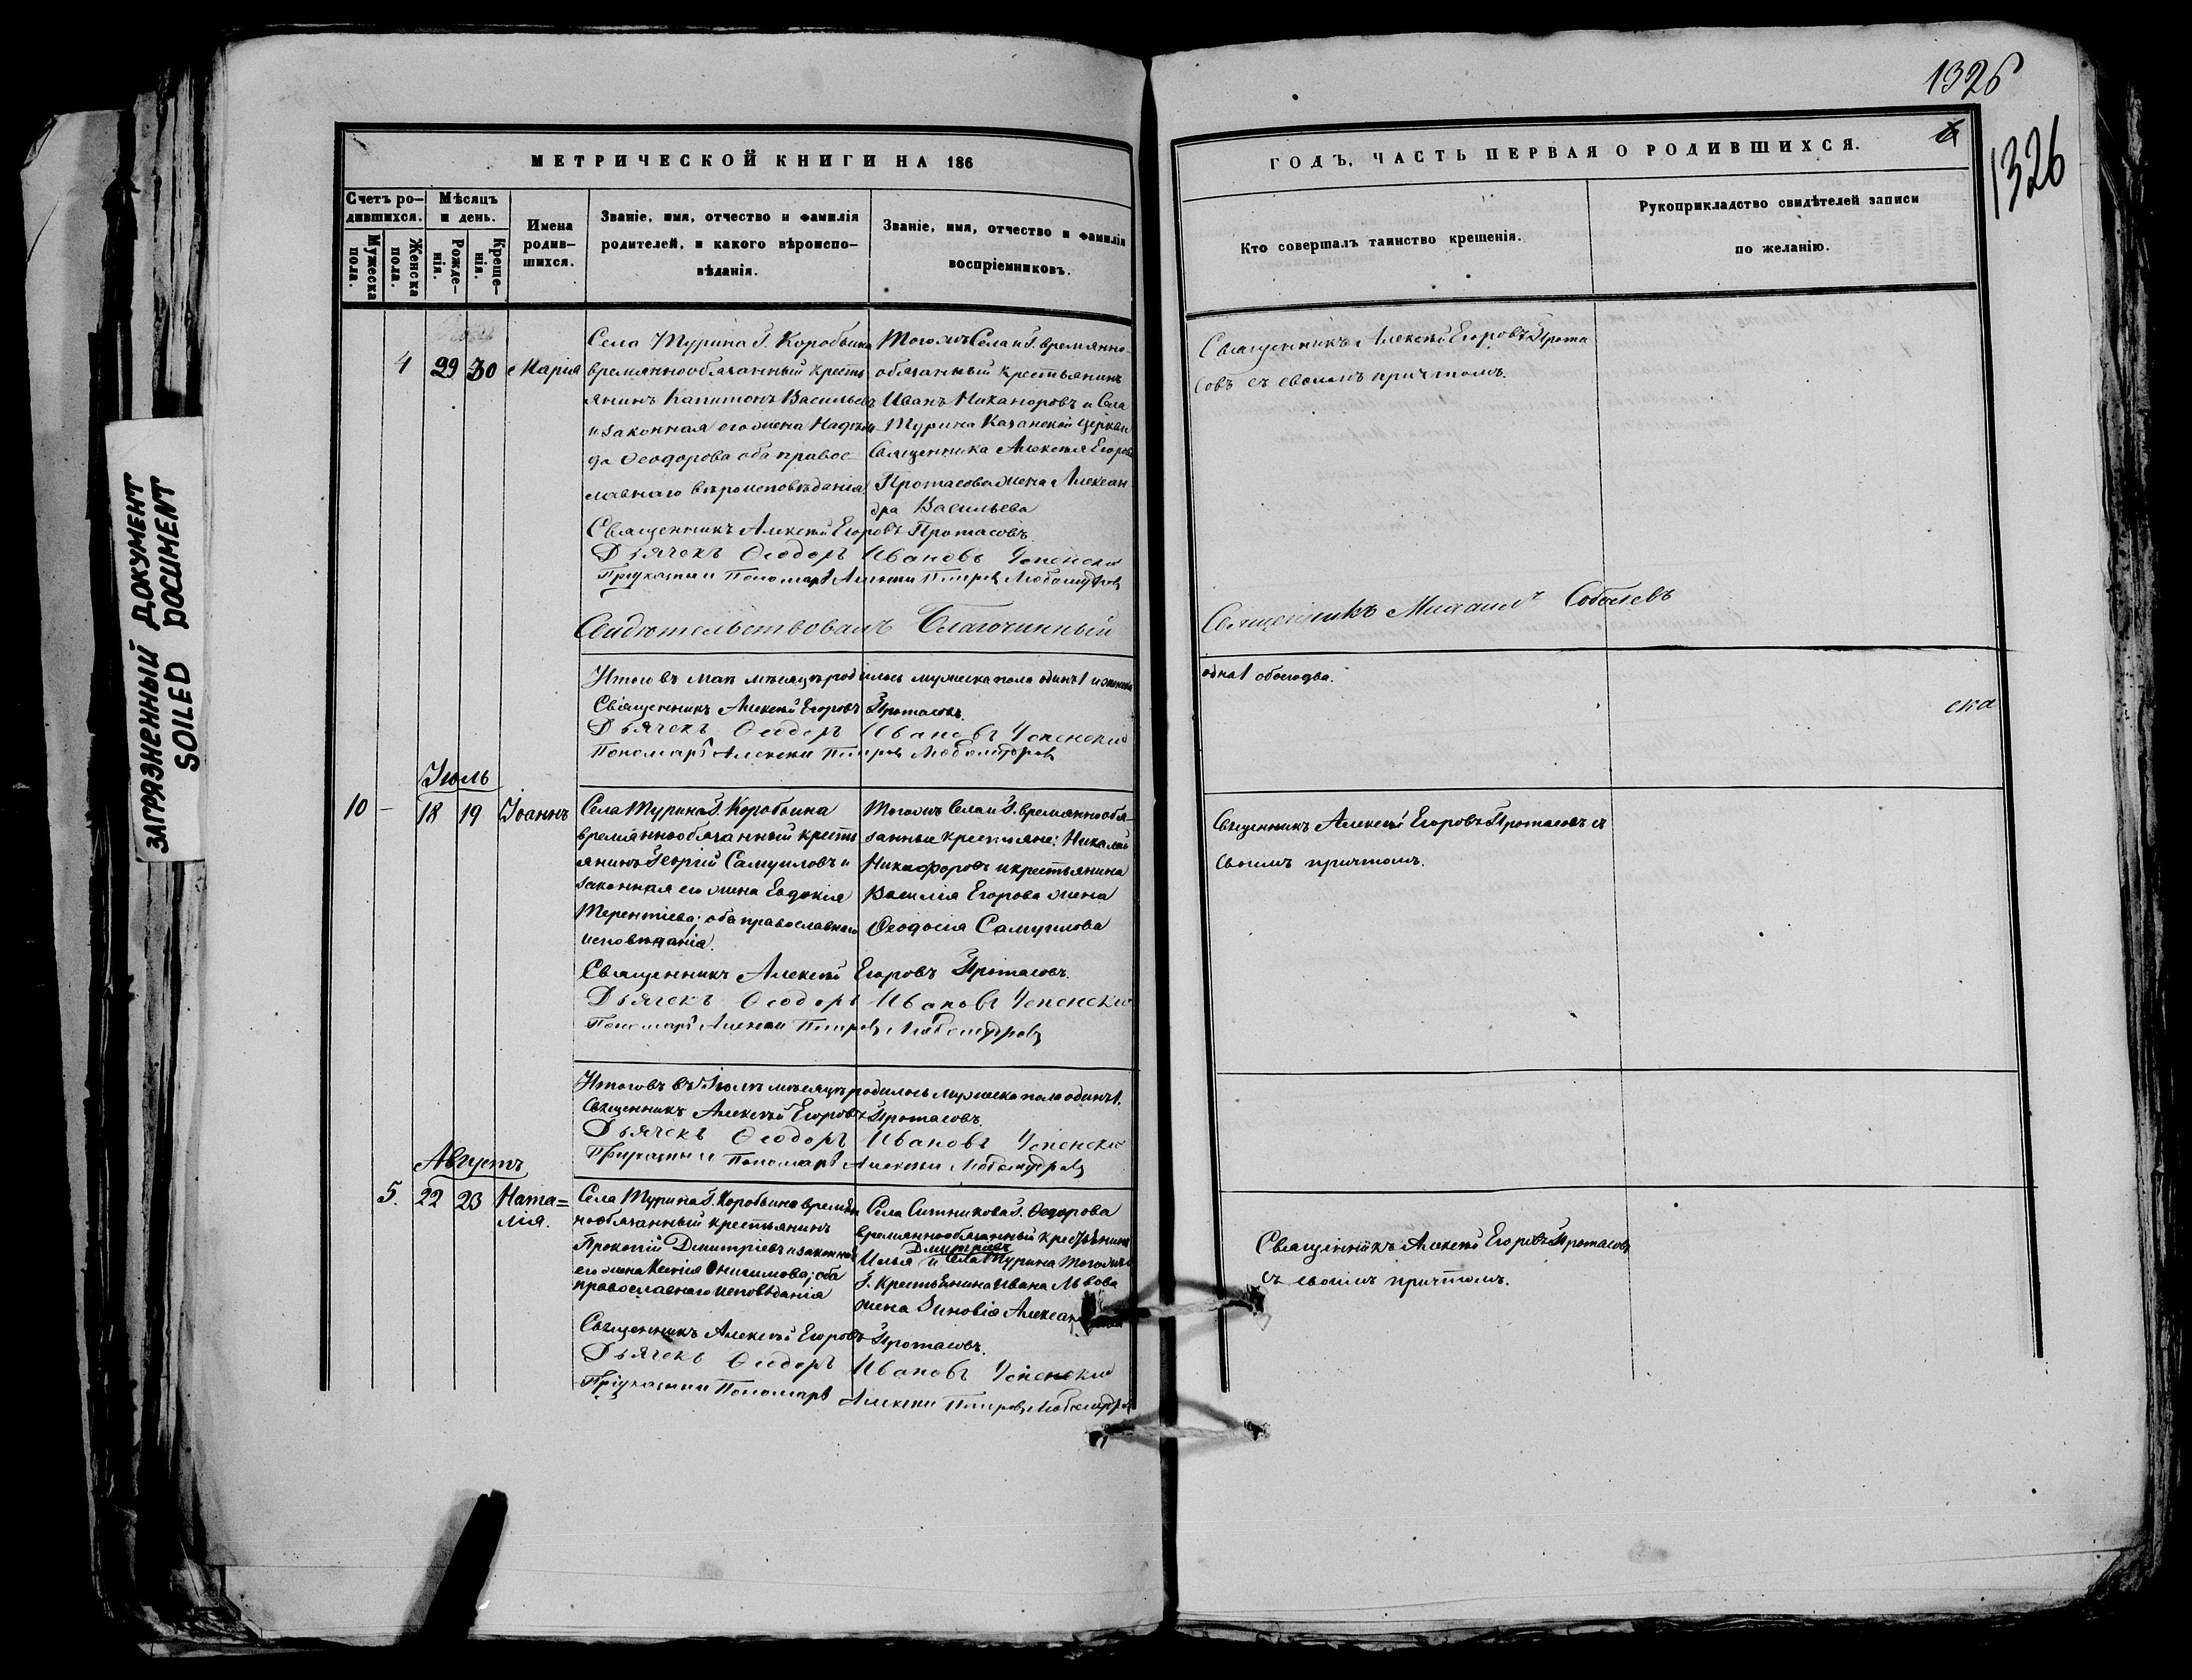 1326
1326
МЕТРИЧЕСКОЙ КНИГИ НА 186
ГОДЪ, ЧАСТЬ ПЕРВАЯ О РОДИВШИХСЯ.
Счетъ ро-
дившихся.
Мужеска
пола.
Женска
пола.
Мѣсяцъ
и день.
Рожде-
нія.
Креще-
нія.
Имена
родив-
шихся.
Званіе, имя, отчество и фамилія
родителей, и какого вѣроиспо-
вѣданія.
Званіе, имя, отчество и фамилія
воспріемниковъ.
Кто совершалъ таинство крещенія.
Рукоприкладство свидѣтелей записи
по желанію.
4 29 30 Марія
Села Турина Г. Коробьина
временнообязанный кресть
янинъ Капитонъ Васильевъ
и законная его жена Надеж
да Ѳеодорова оба правос-
лавнаго вѣроисповѣданія.
Тогожъ Села и Г. временно-
обязанный крестьянинъ
Иванъ Никаноровъ и Села
Турина Казанской церкви
Священника Алексѣя Егорова
Протасова жена Алексан
дра Васильева
Священникъ Алексѣй Егоровъ Прота
совъ съ своимъ причтомъ.
Священникъ Алексѣй Егоровъ Протасовъ.
Дьячекъ Ѳеодоръ Ивановъ Успенскій
Пономарь Алексѣй Петровъ Любомудровъ
Свидѣтельствовалъ Благочинный
Священникъ Михаилъ Соболевъ
Итого въ маѣ мѣсяцѣ родилось мужеска пола одинъ 1 и женска
одна 1 обоего два.
ска
Священникъ Алексѣй Егоровъ Протасовъ.
Дьячекъ Ѳеодоръ Ивановъ Успенскій
Пономарь Алексѣй Петровъ Любомудровъ
Іюль
10 - 18 19 Іоаннъ
Села Турина Г. Коробьина
временнообязанный кресть
янинъ Георгій Самуиловъ и
законная его жена Евдокія
Терентіева; оба православнаго
исповѣданія.
Тогожъ Села и Г. временнообя-
занные крестьяне: Николай
Никифоровъ и крестьянина
Василія Егорова жена
Ѳеодосія Самуилова
Священникъ Алексѣй Егоровъ Протасовъ съ
своимъ причтомъ.
Священникъ Алексѣй Егоровъ Протасовъ.
Дьячекъ Ѳеодоръ Ивановъ Успенскій
Пономарь Алексѣй Петровъ Любомудровъ
Итого въ Іюлѣ мѣсяцѣ родилось мужеска пола одинъ 1.
Священникъ Алексѣй Егоровъ Протасовъ.
Дьячекъ Ѳеодоръ Ивановъ Успенскій
Пономарь Алексѣй Любомудровъ
Августъ
5. 22 23 Ната=
лія.
Села Турина Г. Коробьина времен
нообязанный крестьянинъ
Прокопій Дмитріевъ и законная
его жена Ксенія Онисимова; оба
православнаго исповѣданія
Села Ситникова Г. Ѳедорова
временнообязанный крестьянинъ
Дмитріевъ
Илья и Села Турина тогожъ
Г. крестьянина Ивана Львова
жена Зиновія
Священникъ Алексѣй Егоровъ Протасовъ
съ своимъ причтомъ.
Священникъ Алексѣй Егоровъ Протасовъ.
Дьячекъ Ѳеодоръ Ивановъ Успенскій
Пономарь Алексѣй Петровъ Любомудровъ
ЗАГРЯЗНЕННЫЙ ДОКУМЕНТ
SOILED DOCUMENT